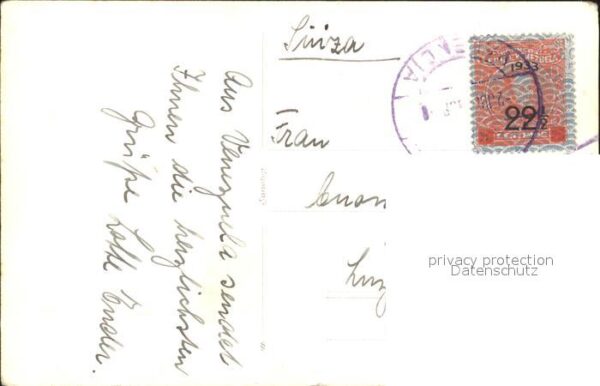 Aus Venezuela sendet
Ihnen die herzlichsten
Grüße Lotte Ender.
Suiza
Frau
Luz
1933
22½
privacy protection
Datenschutz